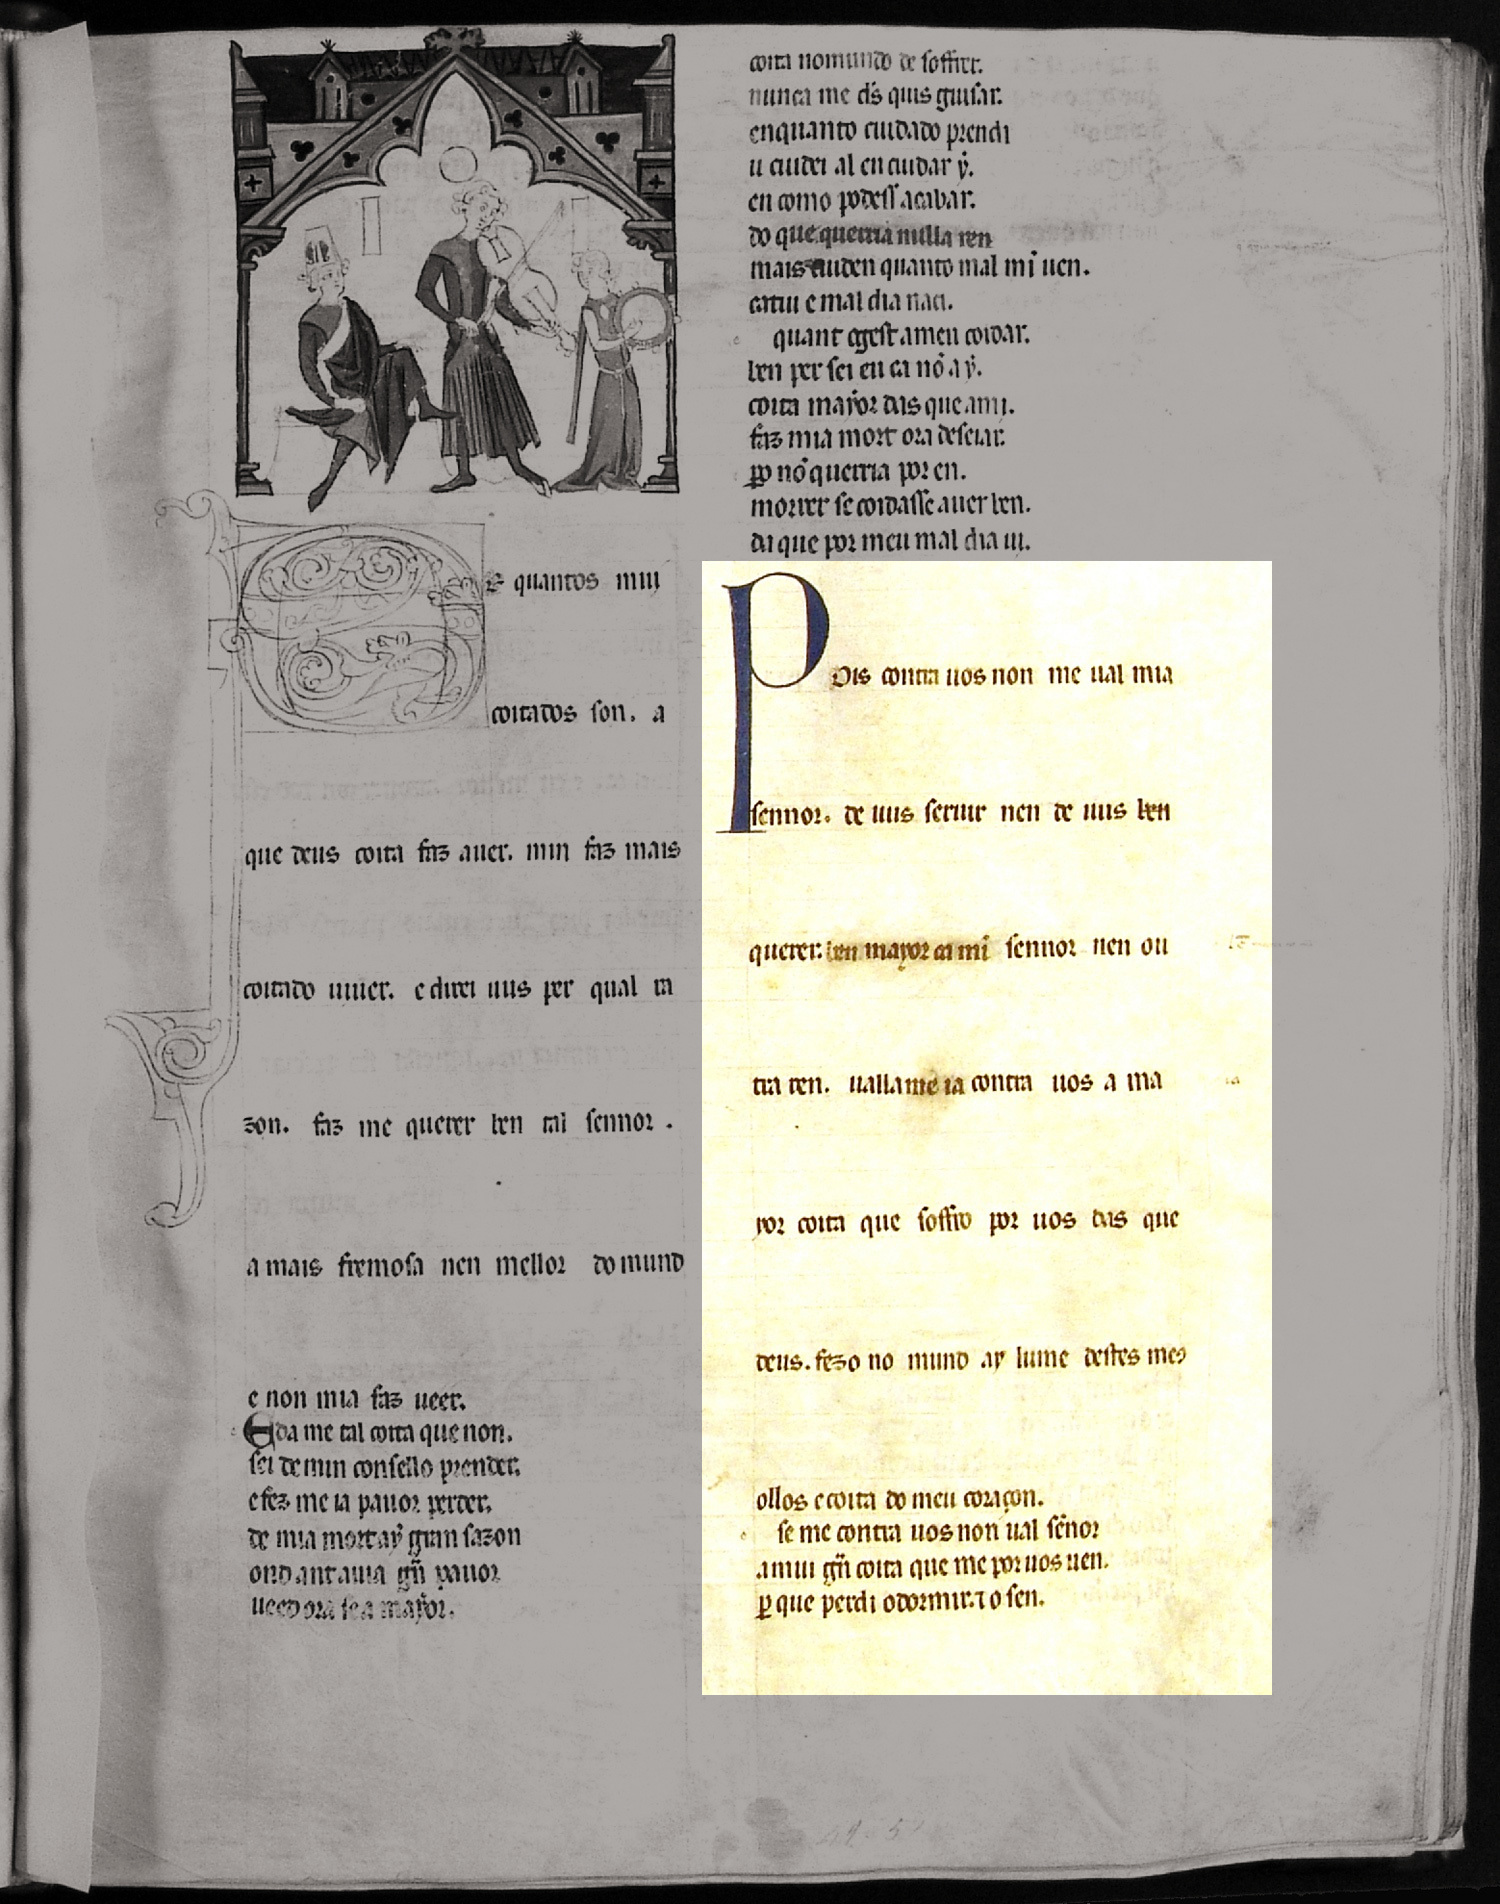 E quantos mui
coitados son. a
que deus coita faz auer. min faz mais
coitado uiuer. e direi uus per qual ra
zon. faz me querer ben tal sennor.
a mais fremosa nen mellor do mund
e non mia faz ueer.
E da me tal coita que non.
sei de min consello prender.
e fez me ia pauor perder.
de mia mort aẏ gran sazon
ond ant auia gñ pauor
ueed ora se a maẏor.
coita no mundo de soffrer.
nunca me d̃s quis guisar.
enquanto cuidado prendi
u cuidei al en cuidar ẏ.
en como podess acabar.
do que querria nulla ren
mais cuid en quanto mal mi uen.
catiu e mal dia naci.
quant og est a meu coidar.
ben per sei eu ca nõ a ẏ.
coita maẏor das que a mi.
faz mia mort ora deseiar.
ꝑo nõ querria por en.
morrer se coidasse auer ben.
da que por meu mal dia ui.
Pois contra uos non me ual mia
sennor. de uus seruir nen de uus ben
querer. ben mayor ca mi sennor nen ou
tra ren. ualla me ia contra uos a ma
yor coita que soffro por uos das que
deus. fezo no mund ay lume destes meꝯ
ollos e coita do meu coraçon.
se me contra uos non ual sẽnor
a mui gñ coita que me por uos uen.
ꝑ que perdi o dormir. ⁊ o sen.